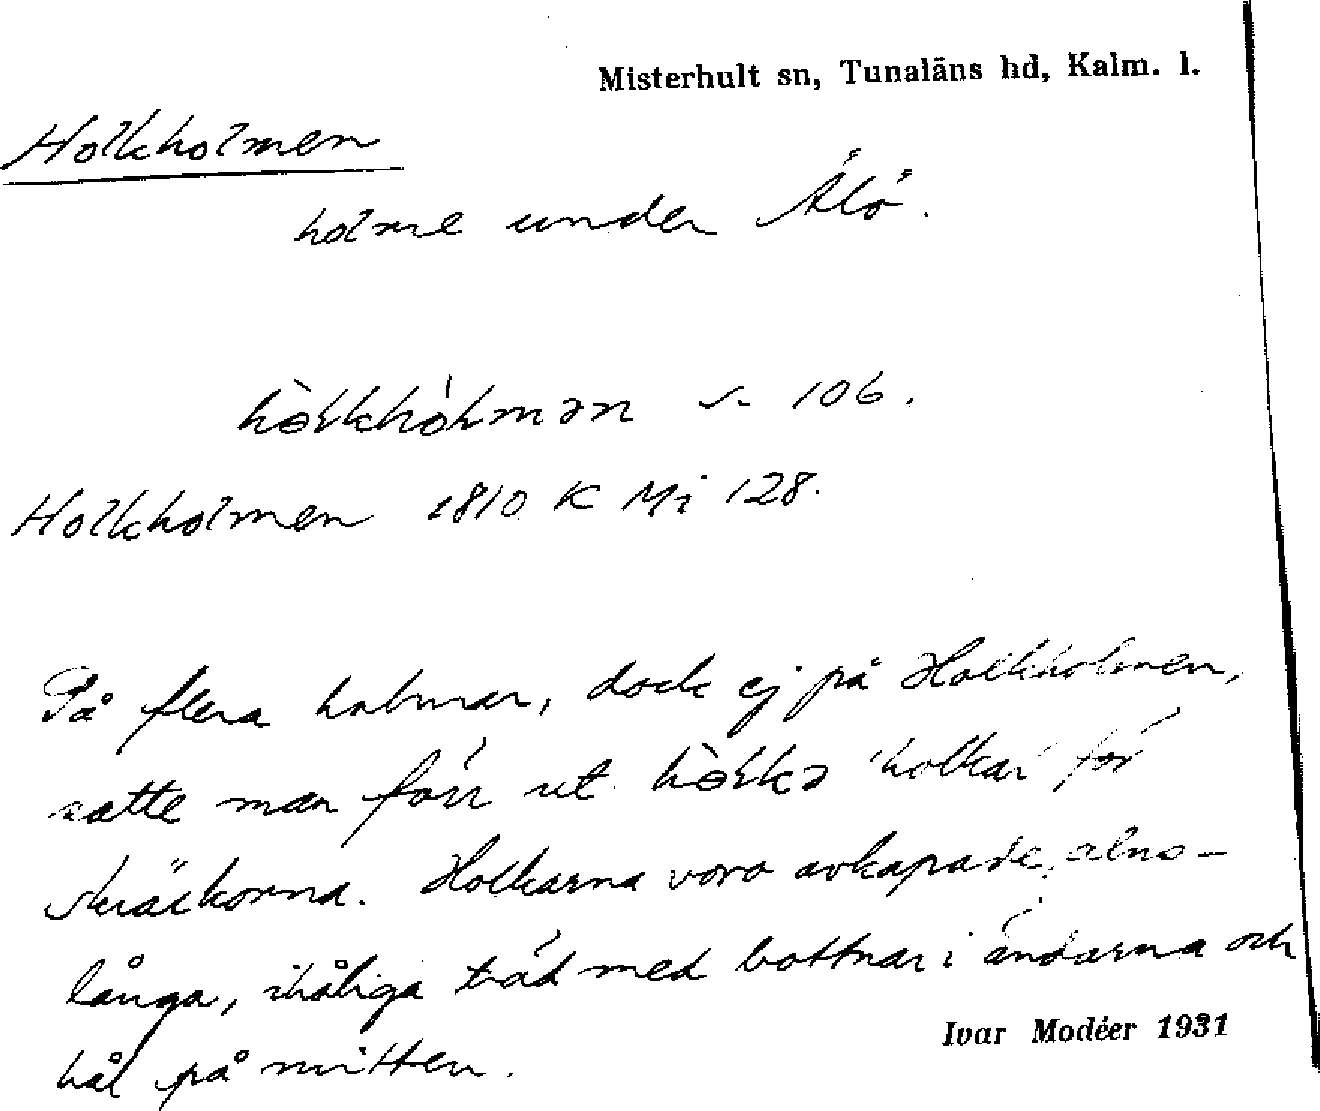 Misterhult sn, Tunaläns hd, Kalm. l.
Holkholmen
holme under Älö.
hò̵lkhòlmən s. 106.
Holkholmen 1810 K Mi 128.
På flera holmar, dock ej på Holkholmen,
satte man förr ut hò̵lkə 'holkar' för
skräckorna. Holkarna voro avkapade, alns-
långa, ihåliga träd med bottnar i ändarna och
hål på mitten.
Ivar Modéer 1931